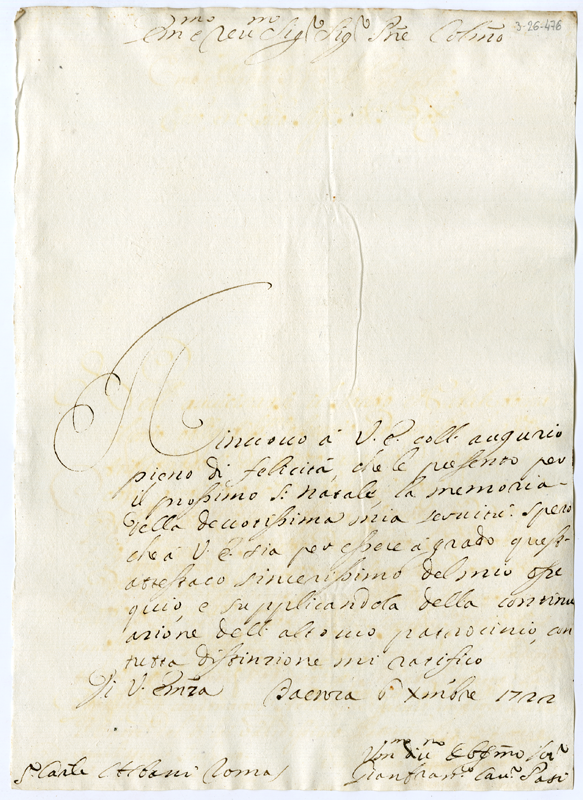 Em.mo e Reu.mo Sig.r Sig.r Pne Colmo
3-26-476
Rinuouo à V. E. coll' augurio
pieno di felicità, che le presento per
il prossimo S. Natale, la memoria
della deuotissima mia seruitù. Spero
che à V. E. sia per essere à grado quest'
attestato sincerissimo del mio osse
quio, e supplicandola della continu
azione dell' alto suo patrocinio, con
tutta distinzione mi ratifico
Di V. Emza Faenza 6 Xmbre 1722
Vm.mo Diu.mo e Obg.mo Ser.r
S.r Card.e Albani Roma
Gianfran.co Cau.r Pasi